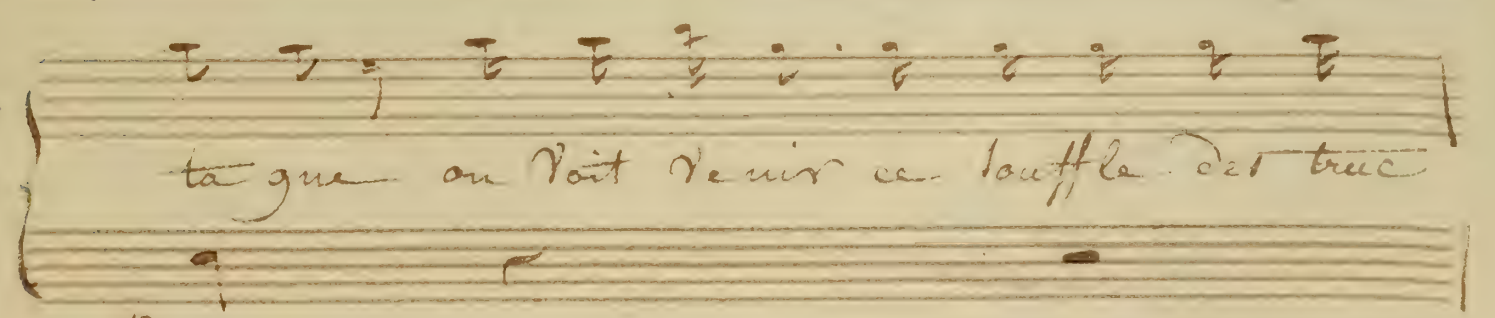 ta gne on voit venir ce souffle des truc